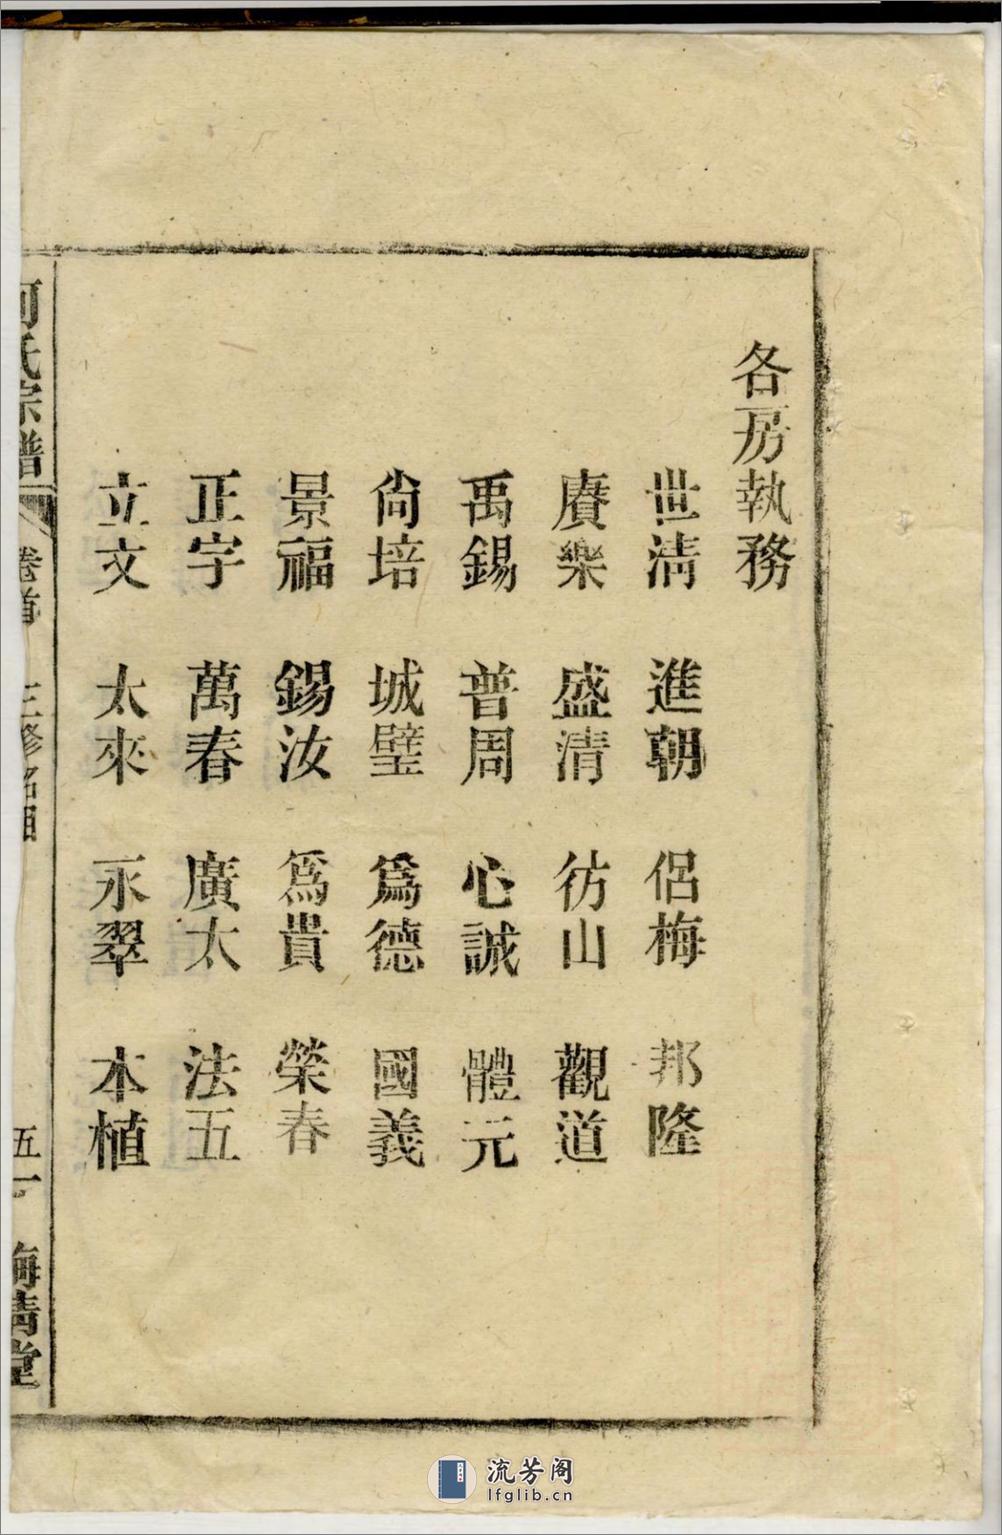 各房執務
世淸 進朝 侶梅 邦隆
賡樂 盛清 彷山 觀道
禹錫 普周 心誠 體元
尙培 城壁 爲德 國義
景福 錫汝 爲貴 榮春
正宇 萬春 廣太 法五
立文 太來 永翠 本植
何氏宗譜 卷首 三修名目 五一 梅清堂
流芳阁
lfglib.cn